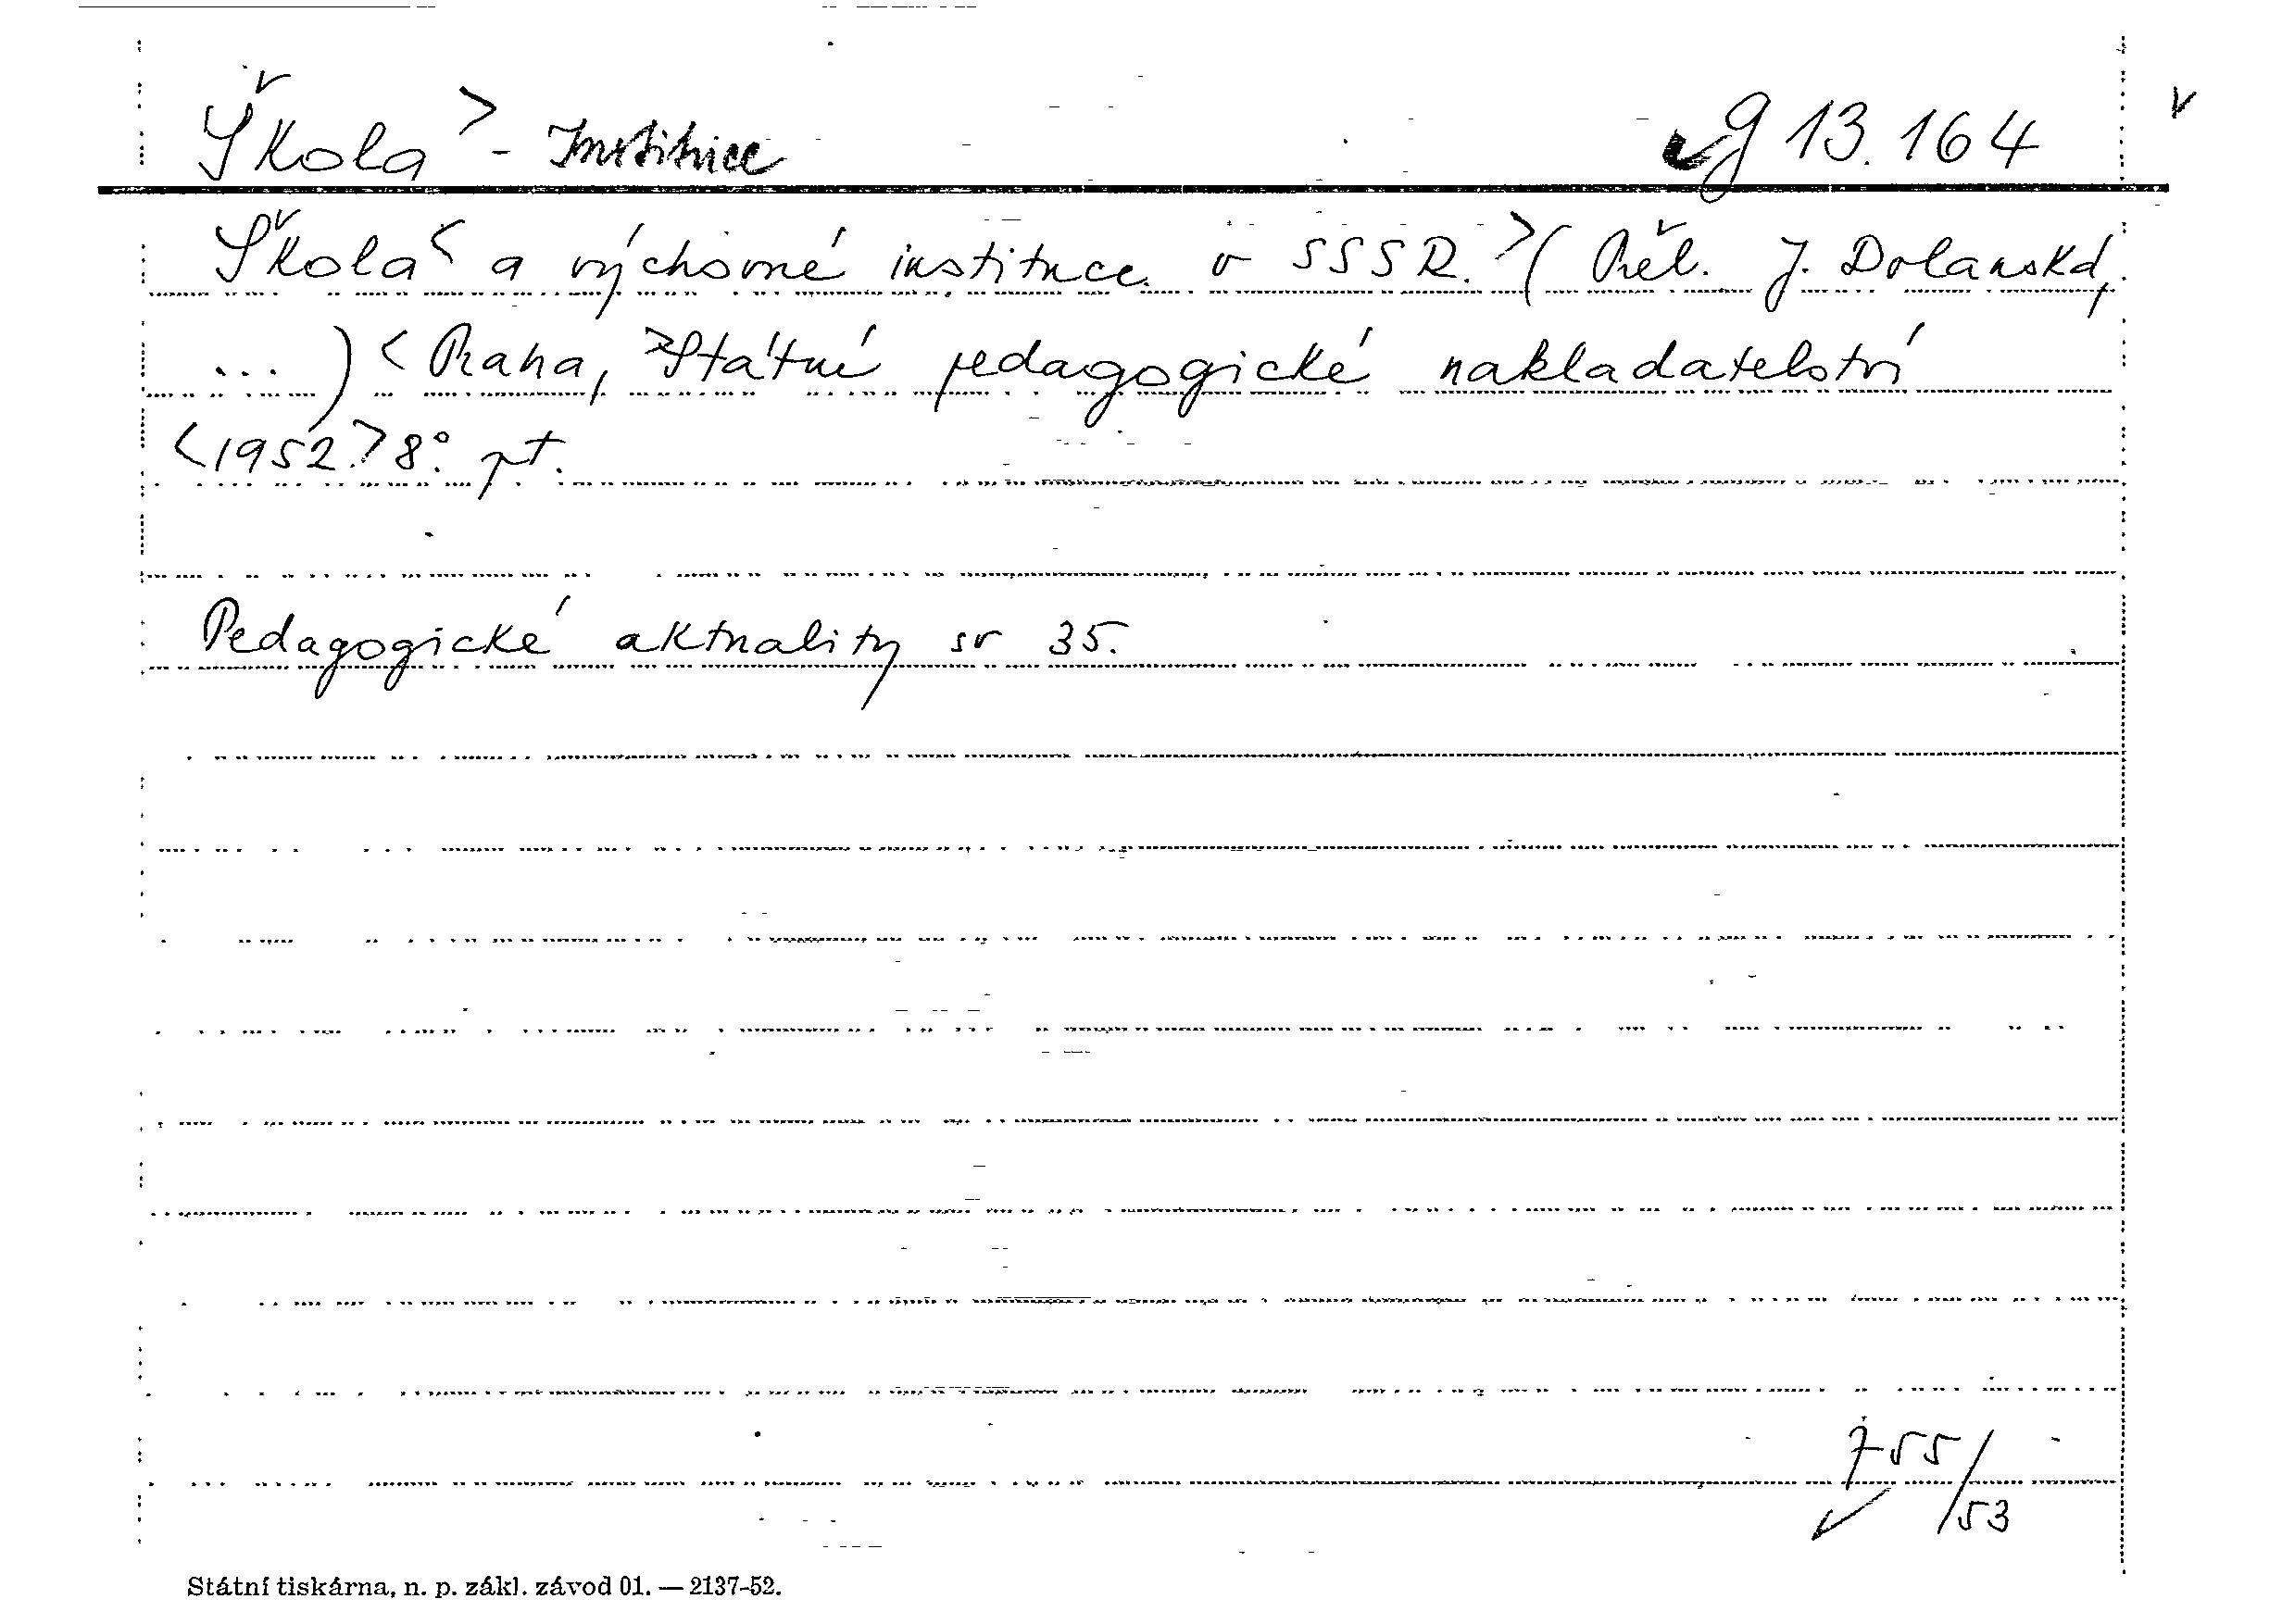 Škola > - Instituce g 13.164 v
Škola < a výchovné instituce v SSSR. > (Přel. J. Dolanská,
...) < Praha, > Státní pedagogické nakladatelství
<1952.> 8°. pt.
Pedagogické aktuality sv 35.
755/53
Státní tiskárna, n. p. zákl. závod 01. — 2137-52.